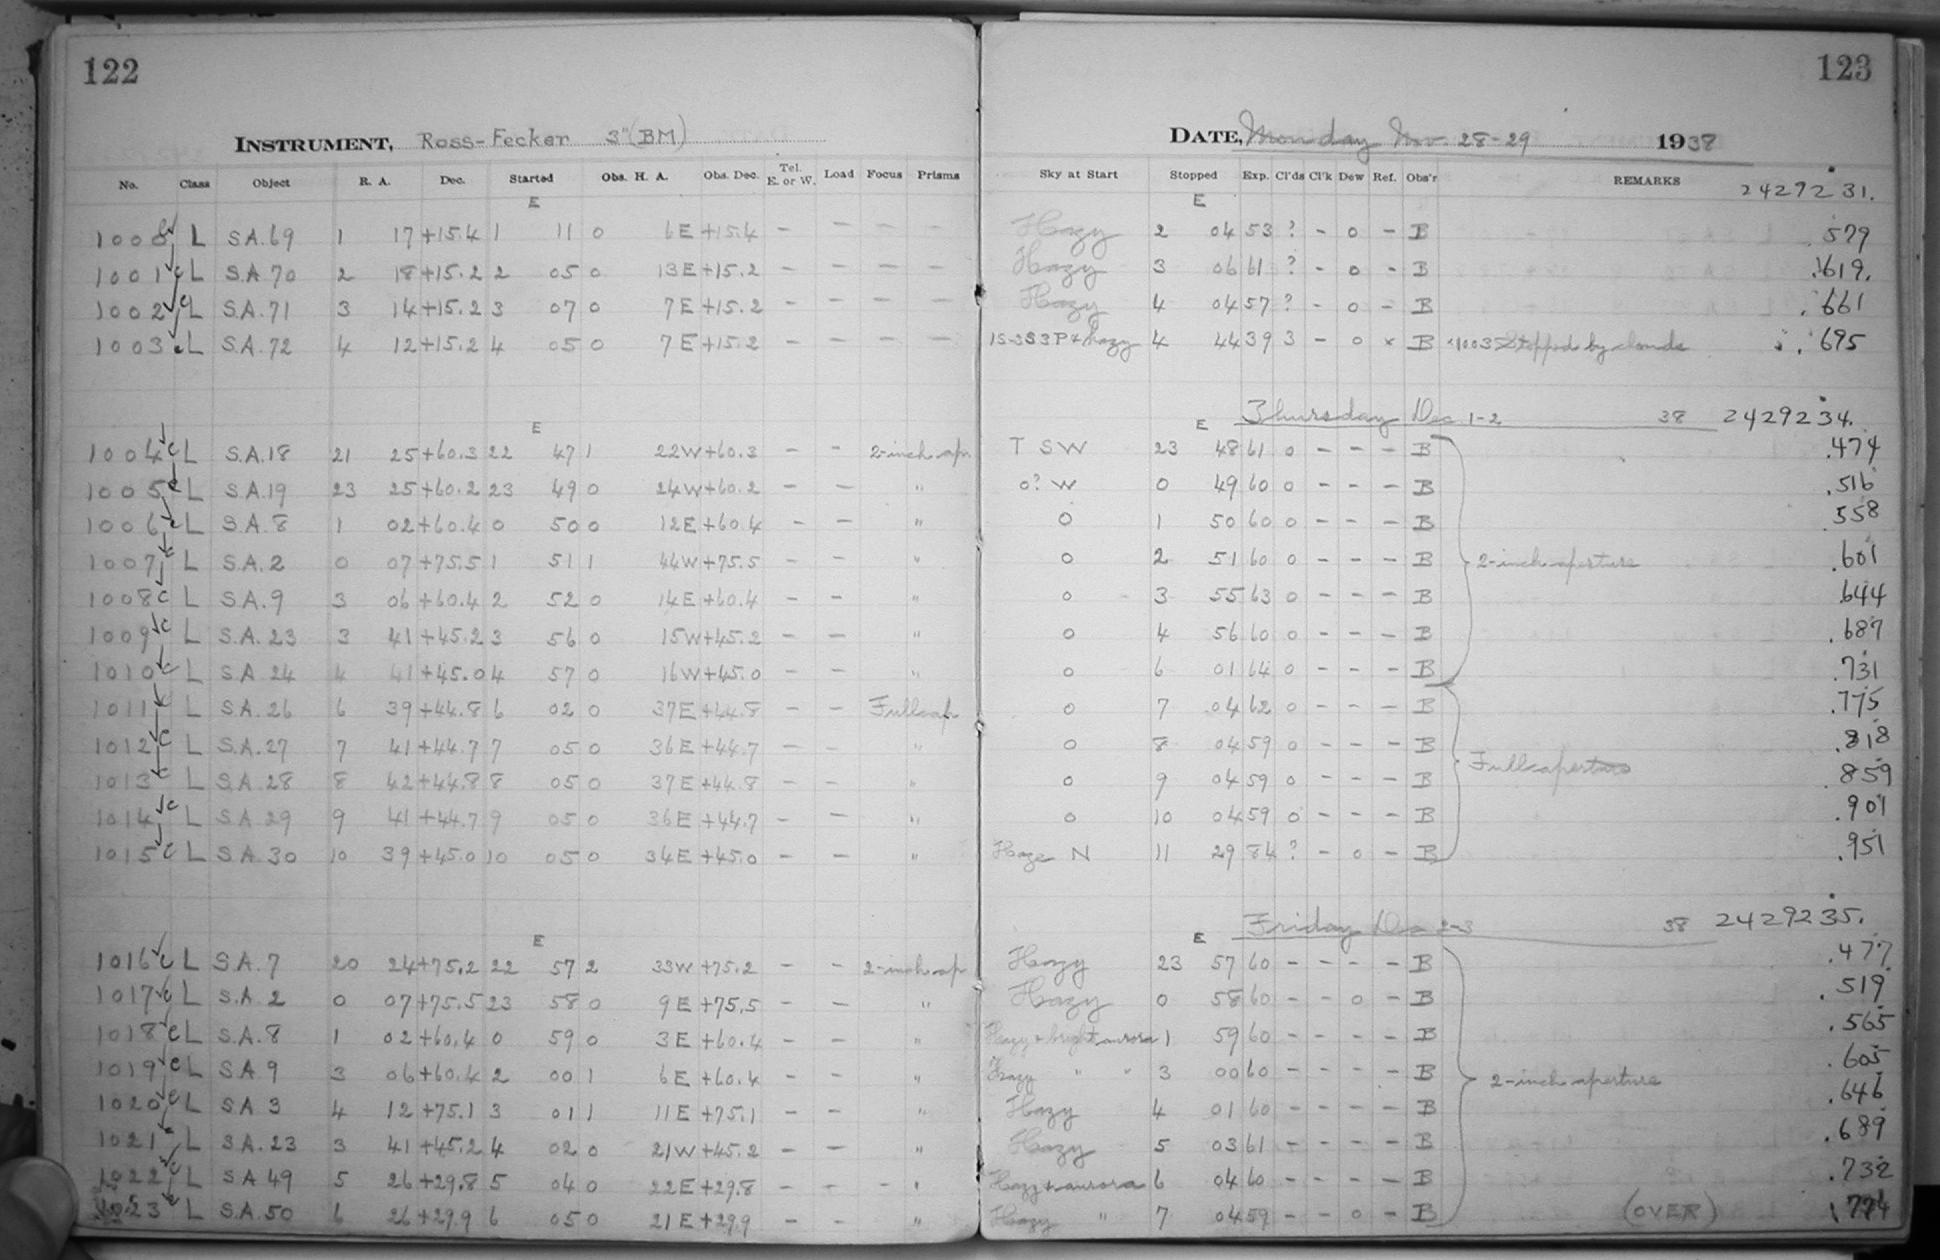 122
INSTRUMENT, Ross-Fecker 3"(BM)
No. Class Object R. A. Dec. Started Obs. H. A. Obs. Dec. Tel. E. or W. Load Focus Prisms
E
1000 L S.A.69 1 17 +15.4 1 11 0 6E +15.4 - - - -
1001 c L S.A.70 2 18 +15.2 2 05 0 13E +15.2 - - - -
1002 c L S.A.71 3 14 +15.2 3 07 0 7E +15.2 - - - -
1003 c L S.A.72 4 12 +15.2 4 05 0 7E +15.2 - - - -
E
1004 c L S.A.18 21 25 +60.3 22 47 1 22W +60.3 - - 2-inch ap
1005 c L S.A.19 23 25 +60.2 23 49 0 24W +60.2 - - "
1006 c L S.A.8 1 02 +60.4 0 50 0 12E +60.4 - - "
1007 c L S.A.2 0 07 +75.5 1 51 1 44W +75.5 - - "
1008 c L S.A.9 3 06 +60.4 2 52 0 14E +60.4 - - "
1009 c L S.A.23 3 41 +45.2 3 56 0 15W +45.2 - - "
1010 c L S.A 24 4 41 +45.0 4 57 0 16W +45.0 - - "
1011 c L S.A.26 6 39 +44.8 6 02 0 37E +44.8 - - Full ap
1012 c L S.A.27 7 41 +44.7 7 05 0 36E +44.7 - - "
1013 c L S.A.28 8 42 +44.8 8 05 0 37E +44.8 - - "
1014 c L S.A 29 9 41 +44.7 9 05 0 36E +44.7 - - "
1015 c L S.A.30 10 39 +45.0 10 05 0 34E +45.0 - - "
E
1016 c L S.A.7 20 24 +75.2 22 57 2 33W +75.2 - - 2-inch ap
1017 c L S.A.2 0 07 +75.5 23 58 0 9E +75.5 - - "
1018 c L S.A.8 1 02 +60.4 0 59 0 3E +60.4 - - "
1019 c L S.A 9 3 06 +60.4 2 00 1 6E +60.4 - - "
1020 c L S.A 3 4 12 +75.1 3 01 1 11E +75.1 - - "
1021 c L S.A.23 3 41 +45.2 4 02 0 21W +45.2 - - "
1022 c L S.A 49 5 26 +29.8 5 04 0 22E +29.8 - - "
1023 c L S.A.50 6 26 +29.9 6 05 0 21E +29.9 - - "
123
DATE, Monday Nov. 28-29 1938
Sky at Start Stopped Exp. Cl'ds Cl'k Dew Ref. Obs'r REMARKS 2429231.
E
Hazy 2 04 53 ? - 0 - B .579
Hazy 3 06 61 ? - 0 - B .619
Hazy 4 04 57 ? - 0 - B .661
1S-3S3P+hazy 4 44 39 3 - 0 x B x1003 Stopped by clouds .695
E Thursday Dec 1-2 38 2429234.
T SW 23 48 61 0 - - - B .474
0? W 0 49 60 0 - - - B .516
0 1 50 60 0 - - - B .558
0 2 51 60 0 - - - B 2-inch aperture .601
0 3 55 63 0 - - - B .644
0 4 56 60 0 - - - B .687
0 6 01 64 0 - - - B .731
0 7 04 62 0 - - - B .775
0 8 04 59 0 - - - B Full aperture .818
0 9 04 59 0 - - - B .859
0 10 04 59 0 - - - B .901
Haze N 11 29 84 ? - 0 - B .951
E Friday Dec 2-3 38 2429235.
Hazy 23 57 60 - - - - B .477
Hazy 0 58 60 - - 0 - B .519
Hazy + bright aurora 1 59 60 - - - - B .565
Hazy " " 3 00 60 - - - - B 2-inch aperture .605
Hazy 4 01 60 - - - - B .646
Hazy 5 03 61 - - - - B .689
Hazy + aurora 6 04 60 - - - - B .732
Hazy " 7 04 59 - - 0 - B (OVER) .774